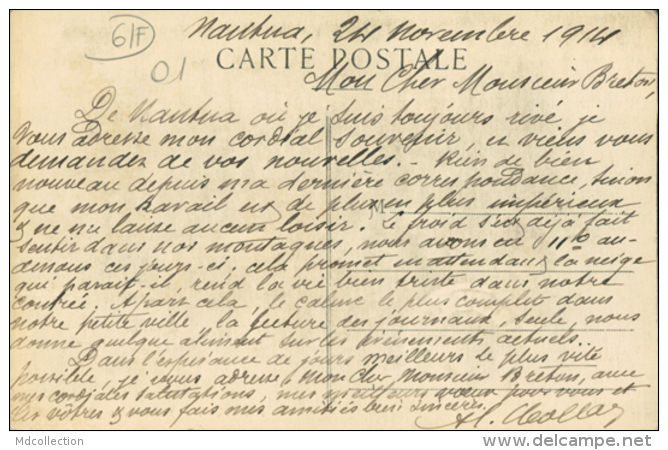 61F
01
Nantua, 24 Novembre 1914
CARTE POSTALE
Mon Cher Monsieur Breton,
De Nantua où je suis toujours rivé je
vous adresse mon cordial souvenir, et viens vous
demander de vos nouvelles. - Rien de bien
nouveau depuis ma dernière correspondance, sinon
que mon travail est de plus en plus impérieux
& ne me laisse aucun loisir. Le froid s'est déjà fait
sentir dans nos montagnes, nous avons eu 11° au-
dessous ces jours-ci, cela promet en attendant la neige
qui paraît-il, rend la vie bien triste dans notre
contrée. Apart cela, le calme le plus complet dans
notre petite ville la lecture des journaux, seule, nous
donne quelque aliment sur les événements actuels.
Dans l'espérance de jours meilleurs le plus vite
possible, je vous adresse, Mon Cher Monsieur Breton, avec
mes cordiales salutations, mes meilleurs vœux pour vous et
les vôtres & vous fais mes amitiés bien sincères.
Mdcollection
www.delcampe.net